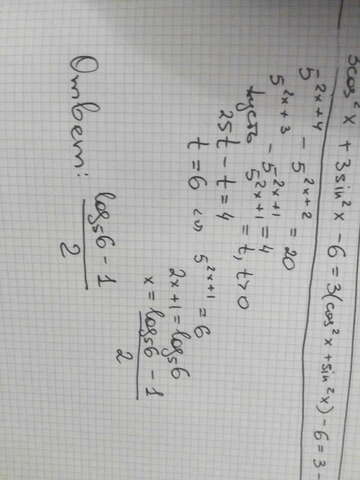 3cos²x + 3sin²x - 6 = 3(cos²x + sin²x) - 6 = 3 -
5^(2x+4) - 5^(2x+2) = 20
5^(2x+3) - 5^(2x+1) = 4
Пусть 5^(2x+1) = t, t>0
25t - t = 4
t = 6 ⇔ 5^(2x+1) = 6
2x+1 = log₅6
x = (log₅6 - 1)/2
Ответ: (log₅6 - 1)/2